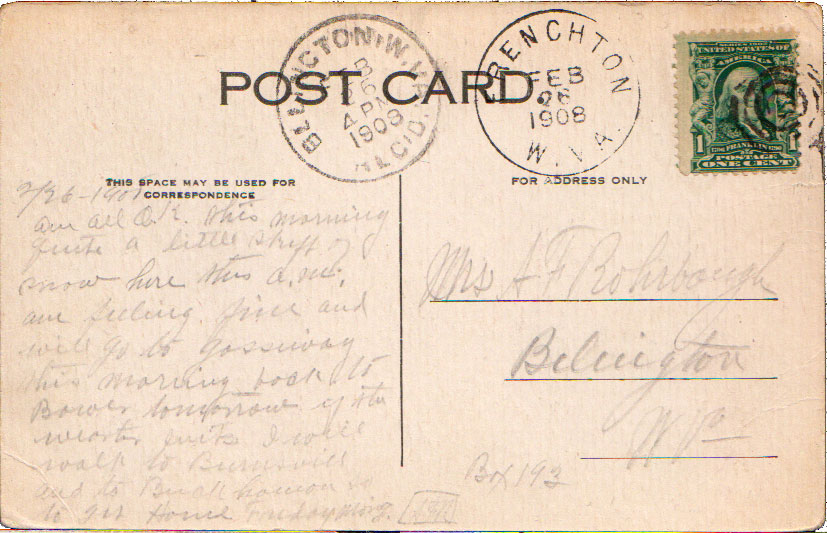 POST CARD.
BELINGTON, W.VA.
FEB
26
4 PM
1908
REC'D.
FRENCHTON
FEB
26
1908
W. VA.
SERIES 1902
UNITED STATES OF
AMERICA
1 1706 FRANKLIN 1790 1
POSTAGE
ONE CENT
THIS SPACE MAY BE USED FOR
CORRESPONDENCE
FOR ADDRESS ONLY
2/26-190
am all O.K. this morning
quite a little skift of
snow here this a.m.
am feeling fine and
will go to Gassaway
this morning back to
Bower tomorrow if the
weather suits I will
walk to Burnsville
and to Buckhannon
to get Home Friday
Mrs A F Rohrbough
Belington
W Va
Box 192